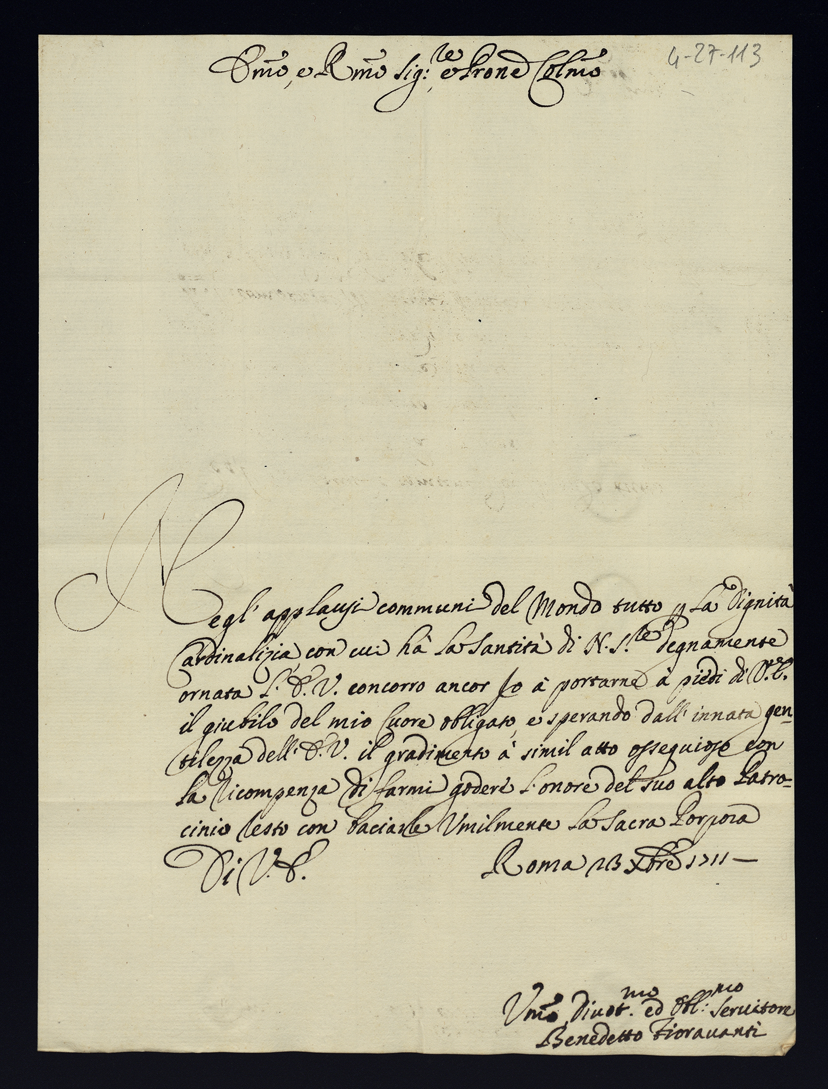 Emo, e Rmo Sig:re e Prone Colmo
4-27-113
Negl' applausi communi del Mondo tutto p la Dignità
Cardinalizia con cui hà la Santità di N. S.re degnamente
ornata l'E. V. concorro ancor Io à portarne à piedi di V. E.
il giubilo del mio Cuore obligato, e sperando dall' innata gen-
tilezza dell' E. V. il gradimento à simil atto ossequioso con
la Ricompenza di farmi godere l'onore del suo alto Patro-
cinio resto con baciarle Umilmente la Sacra Porpora
Di V. E. Roma 23 Xbre 1711 —
Umo, Divot.mo ed Obl:mo Servitore
Benedetto Fioravanti